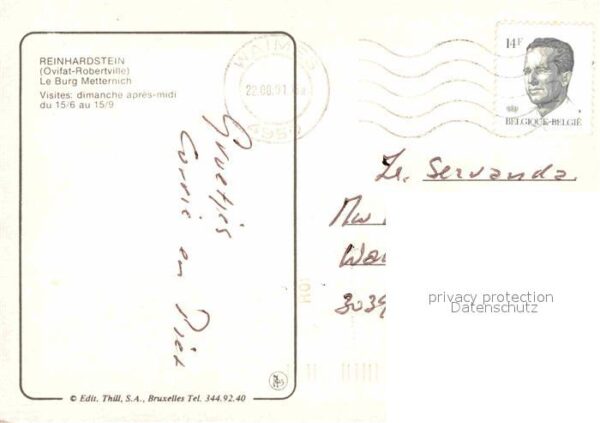 REINHARDSTEIN
(Ovifat-Robertville)
Le Burg Metternich
Visites: dimanche après-midi
du 15/6 au 15/9
Groetjes
Corrie en Piet
© Edit. Thill, S.A., Bruxelles Tel. 344.92.40
22.08.91
14F
BELGIQUE-BELGIË
Zr. Servanda
privacy protection
Datenschutz